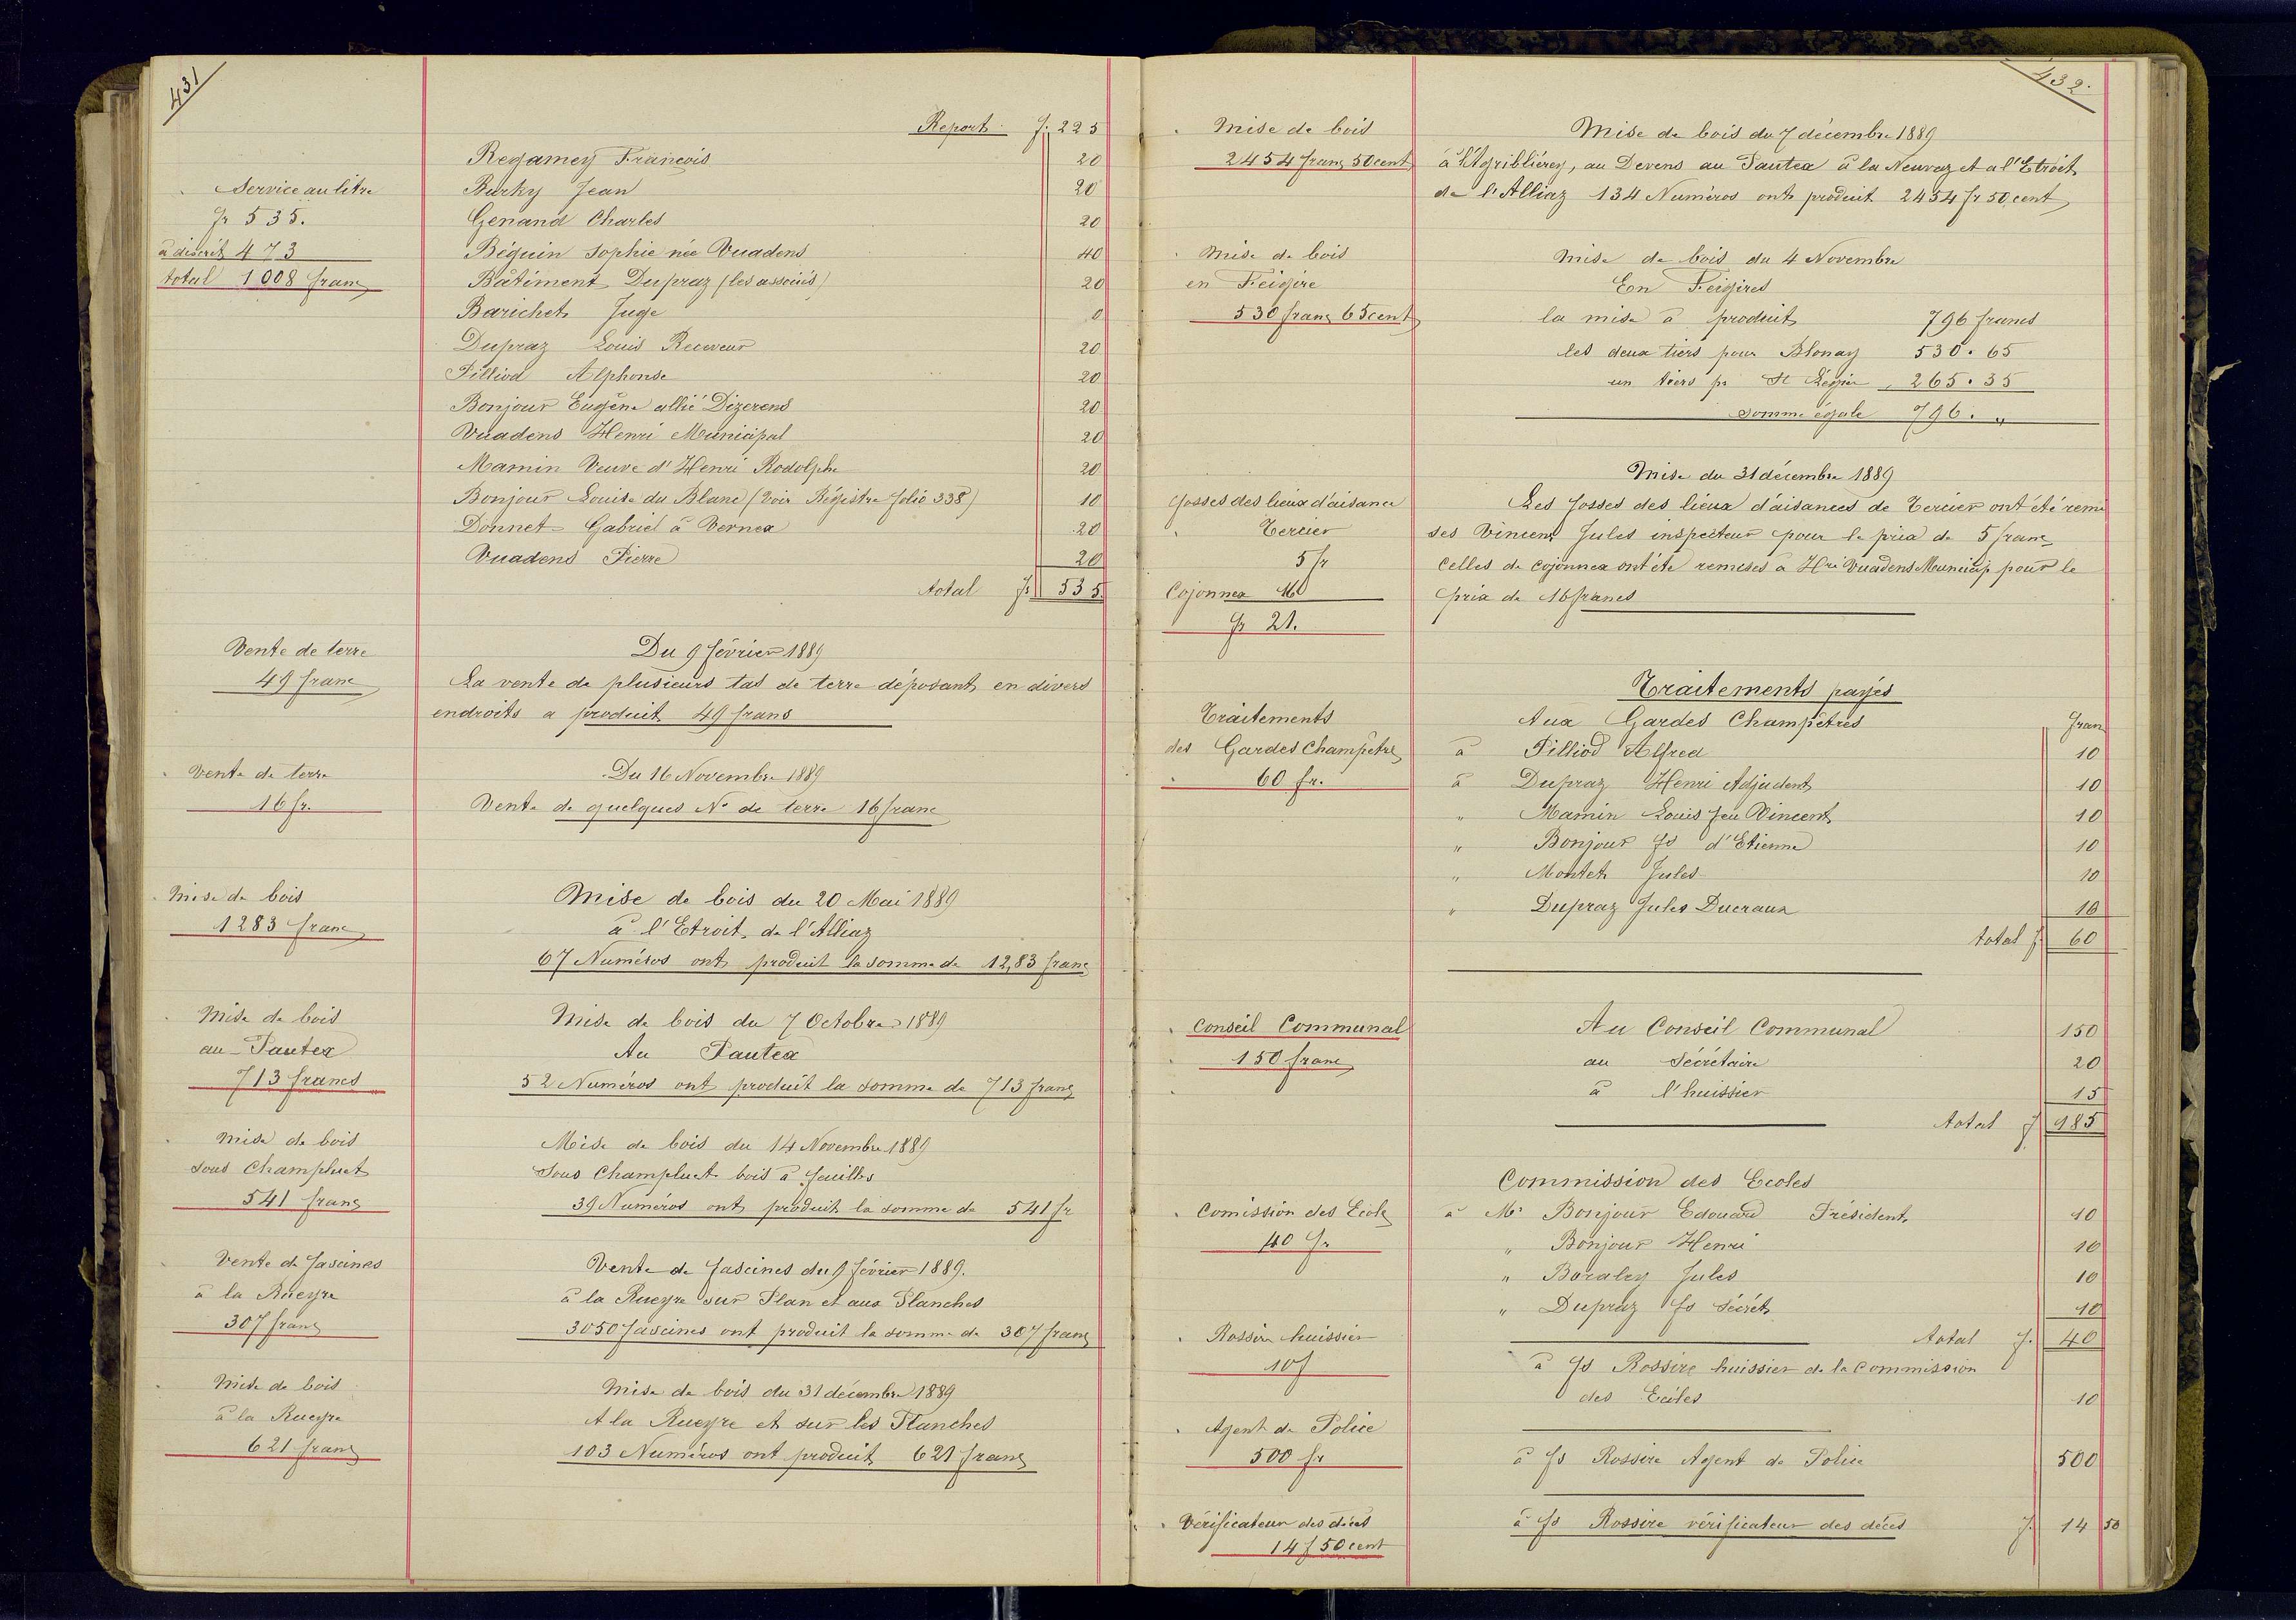 431
Report f. 225
Regamey François 20
Service au litre
Burky Jean 20
fr 535.
Genand Charles 20
à discrét 473
Béguin Sophie née Vuadens 40
total 1008 franc
Bâtiment Dupraz (les associés) 20
Barichet Juge 0
Dupraz Louis Receveur 20
Pilliod Alphonse 20
Bonjour Eugène allié Dizerens 20
Vuadens Henri Municipal 20
Mamin Veuve d'Henri Rodolphe 20
Bonjour Louise du Blanc (Voir Régistre folio 338) 10
Donnet Gabriel à Vernex 20
Vuadens Pierre 20
total fr 535.
Vente de terre
49 franc
Du 9 février 1889
La vente de plusieurs tas de terre déposant en divers
endroits a produit 49 francs
Vente de terre
16 fr.
Du 16 Novembre 1889
Vente de quelques No de terre 16 franc
Mise de bois
1283 franc
Mise de bois du 20 Mai 1889
à l'Etroit de l'Alliaz
67 Numéros ont produit la somme de 12,83 franc
Mise de bois
au Pautex
713 francs
Mise de bois du 7 Octobre 1889
Au Pautex
52 Numéros ont produit la somme de 713 franc
Mise de bois
sous Champluet
541 franc
Mise de bois du 14 Novembre 1889
Sous Champluet bois à feuilles
39 Numéros ont produit la somme de 541 fr
Vente de fascines
à la Rueyre
307 franc
Vente de fascines du 9 février 1889.
à la Rueyre sur Plan et aux Planches
3050 fascines ont produit la somme de 307 franc
Mise de bois
à la Rueyre
621 franc
Mise de bois du 31 décembre 1889
A la Rueyre et sur les Planches
103 Numéros ont produit 621 franc
432.
Mise de bois
2454 franc 50 cent
Mise de bois du 7 décembre 1889
à l'Agribliérey, au Devens au Pautex à la Neuvaz et a l'Etroit
de l'Alliaz 134 Numéros ont produit 2454 fr 50 cent
Mise de bois
en Feigire
530 franc 65 cent
Mise de bois du 4 Novembre
En Feigires
la mise a produit 796 francs
les deux tiers pour Blonay 530.65
un tiers pr St Légier 265.35
somme égale 796. "
fosses des lieux d'aisance
Tercier
5 fr
Cojonnex 16
fr 21.
Mise du 31 décembre 1889
Les fosses des lieux d'aisances de Tercier ont été remi
ses Vincent Jules inspecteur pour le prix de 5 franc
Celles de Cojonnex ont été remises a Hri Vuadens Municip pour le
prix de 16 francs
Traitements
des Gardes Champêtre
60 fr.
Traitements payés
Aux Gardes Champêtres franc
à Pilliod Alfred 10
à Dupraz Henri Adjudent 10
" Mamin Louis feu Vincent 10
" Bonjour fs d'Etienne 10
" Montet Jules 10
" Dupraz Jules Ducraux 10
total f 60
Conseil Communal
150 franc
Au Conseil Communal 150
au Sécrétaire 20
à l'huissier 15
total f 185
Comission des Ecole
40 fr
Commission des Ecoles
à Mr Bonjour Edouard Président 10
" Bonjour Henri 10
" Boraley Jules 10
" Dupraz fs Sécrét 10
total f. 40
Rossire huissier
10 f
à fs Rossire huissier de la Commission
des Ecoles 10
Agent de Police
500 fr
à fs Rossire Agent de Police 500
Vérificateur des décès
14 f 50 cent
à fs Rossire vérificateur des décès f. 14 50